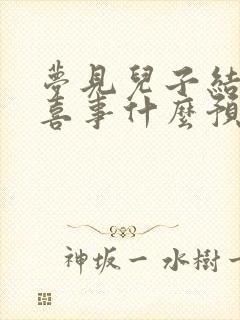 夢見兒子結
喜事什麼預
神坂一 水樹一